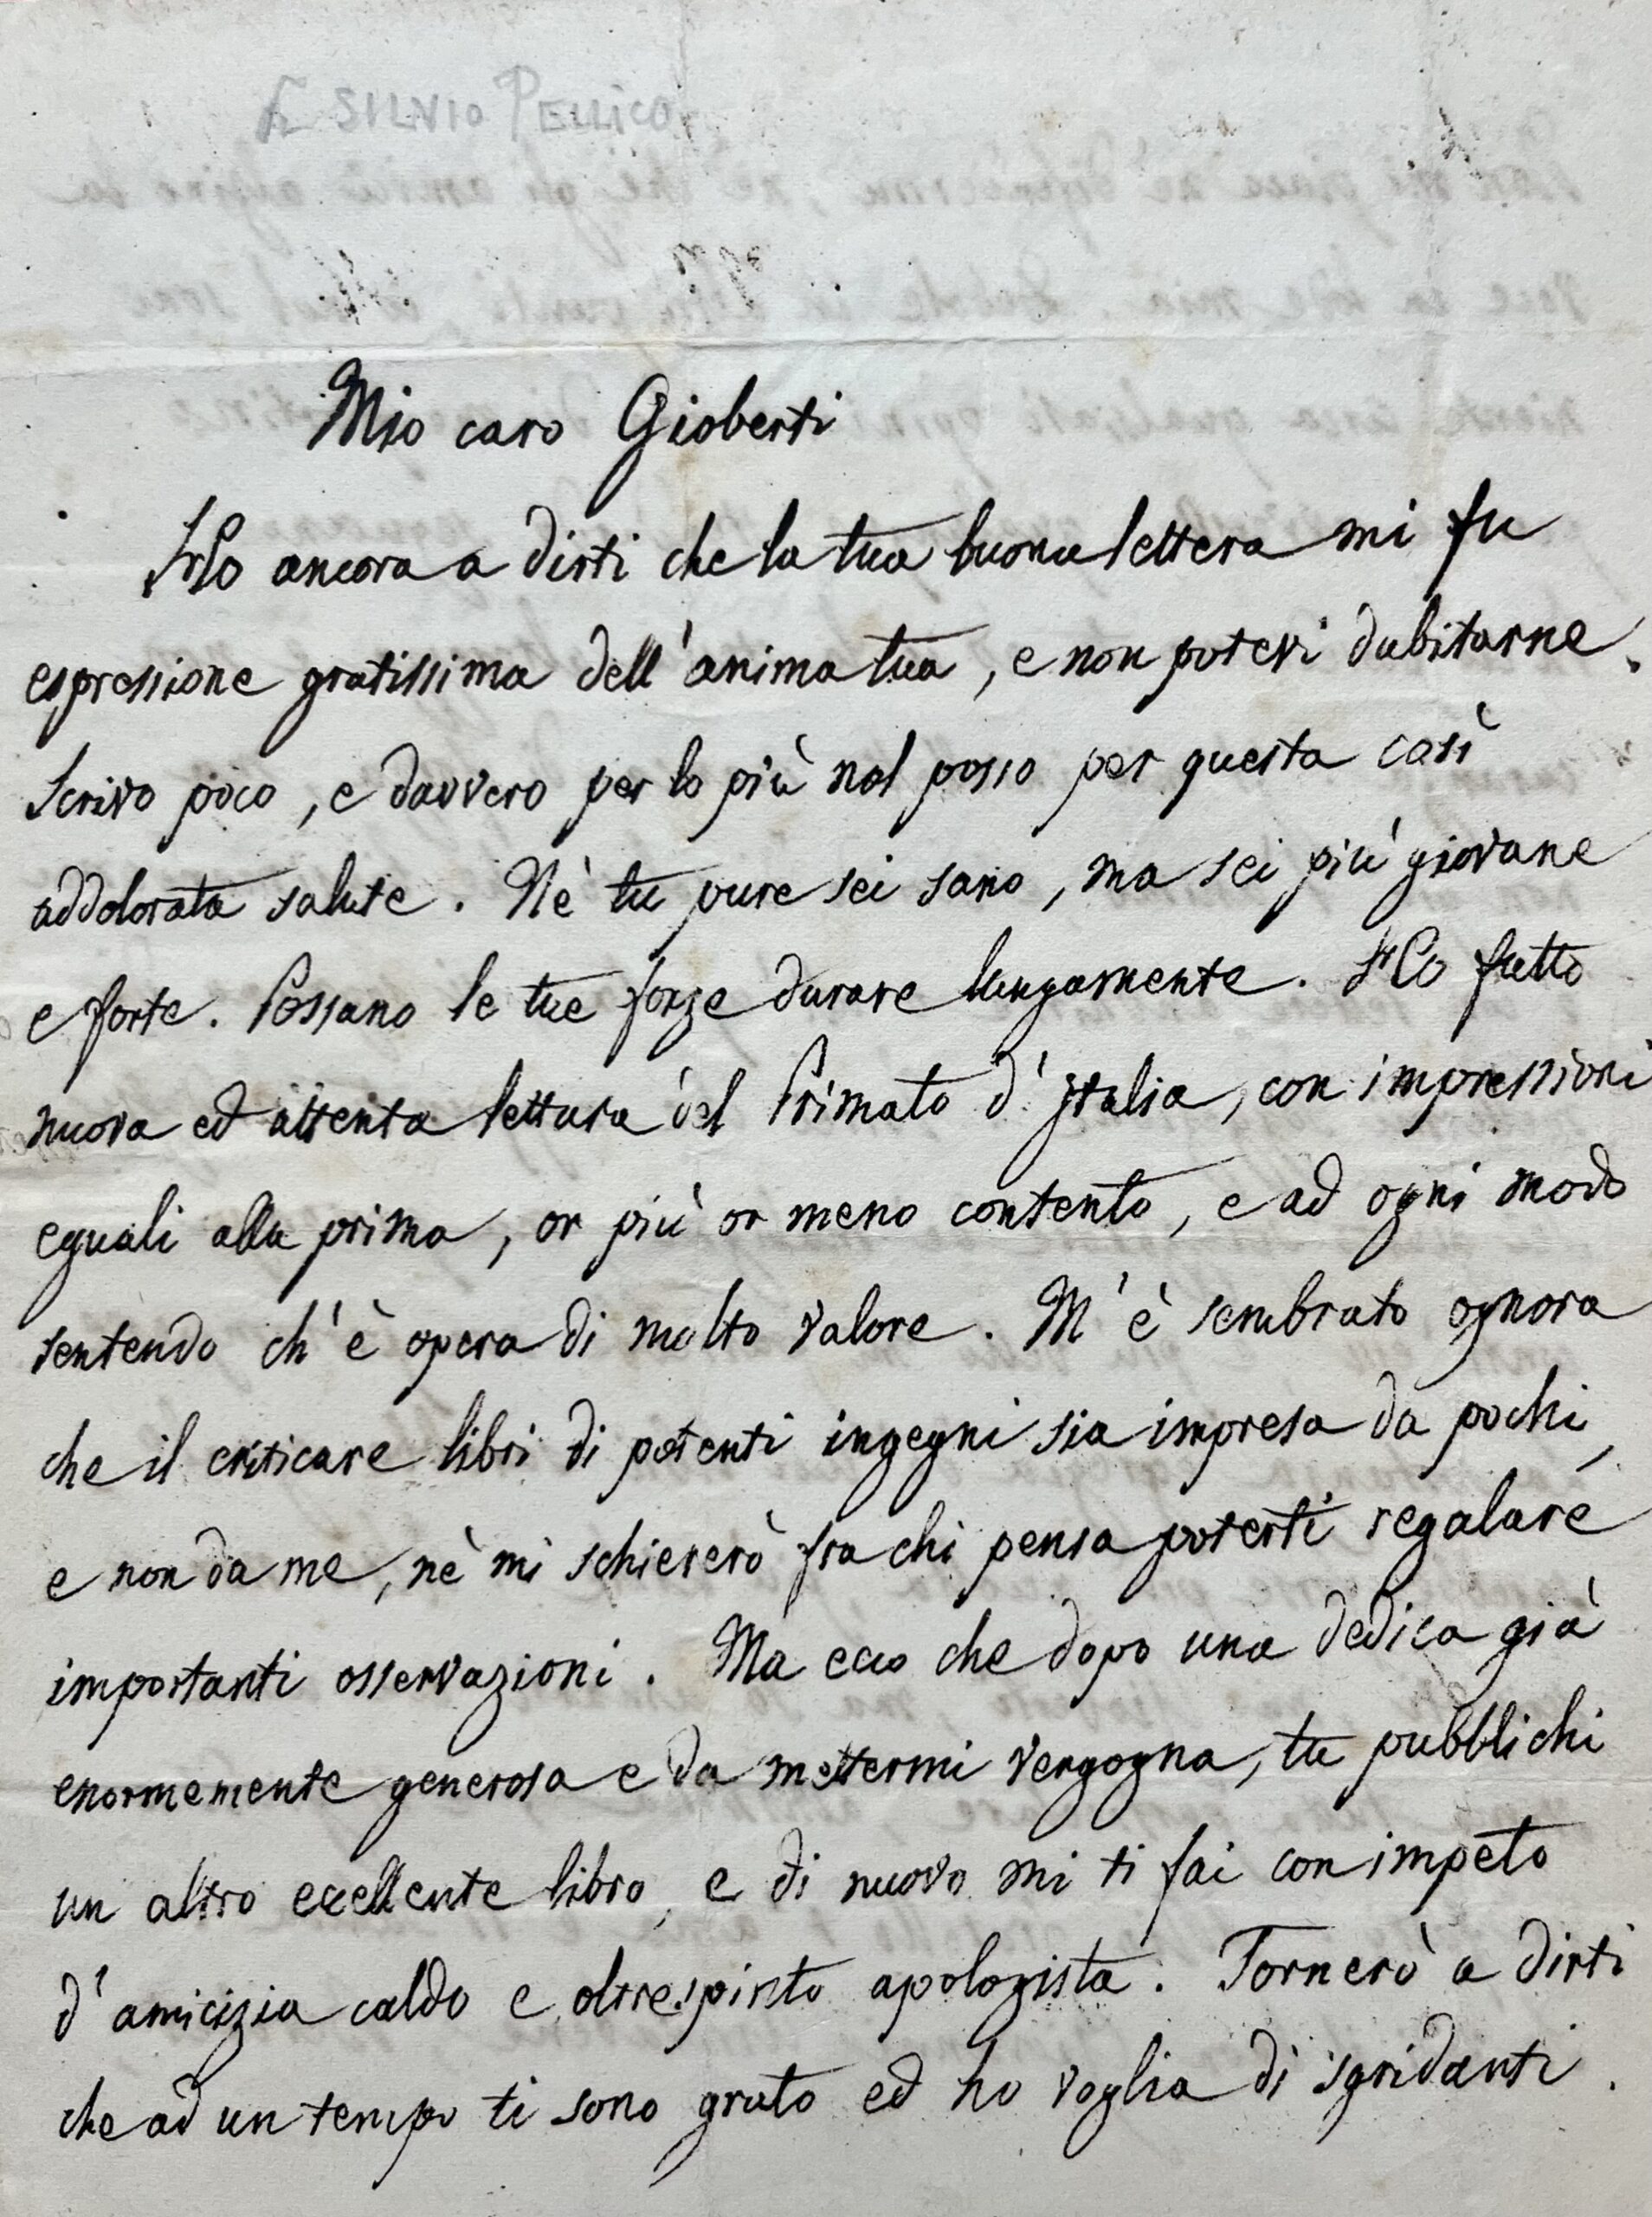 SILVIO PELLICO
Mio caro Gioberti
Ho ancora a dirti che la tua buona lettera mi fu
espressione gratissima dell'anima tua, e non potevi dubitarne.
Scrivo poco, e davvero per lo più nol posso per questa così
addolorata salute. Nè tu pure sei sano, ma sei più giovane
e forte. Possano le tue forze durare lungamente. Ho fatto
nuova ed attenta lettura del Primato d'Italia, con impressioni
eguali alla prima, or più or meno contento, e ad ogni modo
sentendo ch'è opera di molto valore. M'è sembrato ognora
che il criticare libri di potenti ingegni sia impresa da pochi,
e non da me, nè mi schiererò fra chi pensa poterti regalare
importanti osservazioni. Ma ecco che dopo una dedica già
enormemente generosa e da mettermi vergogna, tu pubblichi
un altro eccellente libro, e di nuovo mi ti fai con impeto
d'amicizia caldo e oltrespinto apologista. Tornerò a dirti
che ad un tempo ti sono grato ed ho voglia di sgridarti.